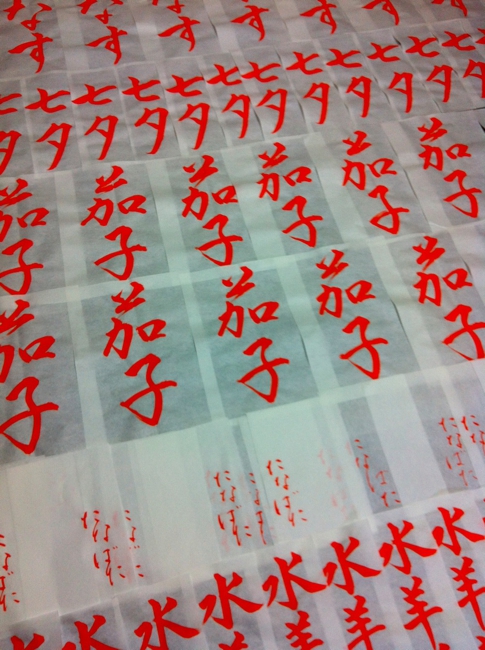 なす
なす
なす
す
す
す
七夕
七夕
七夕
七夕
七夕
七夕
七夕
七夕
七夕
七夕
七夕
七夕
茄子
茄子
茄子
茄子
茄子
茄子
茄子
茄子
茄子
茄子
茄子
たなばた
たなばた
たなばた
たなばた
たなばた
水
水
水
水羊
水羊
水羊
水羊